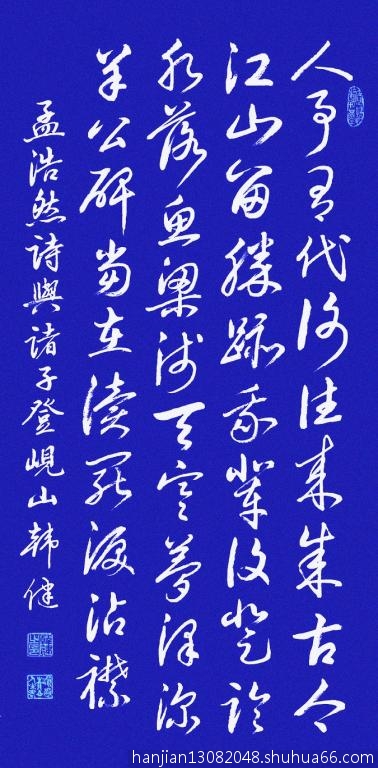 人事有代谢往来成古今
江山留勝跡我輩復登临
水落魚梁浅天寒夢泽深
羊公碑尚在读罷淚沾襟
孟浩然詩與诸子登峴山韩健
hanjian13082048.shuhua66.com